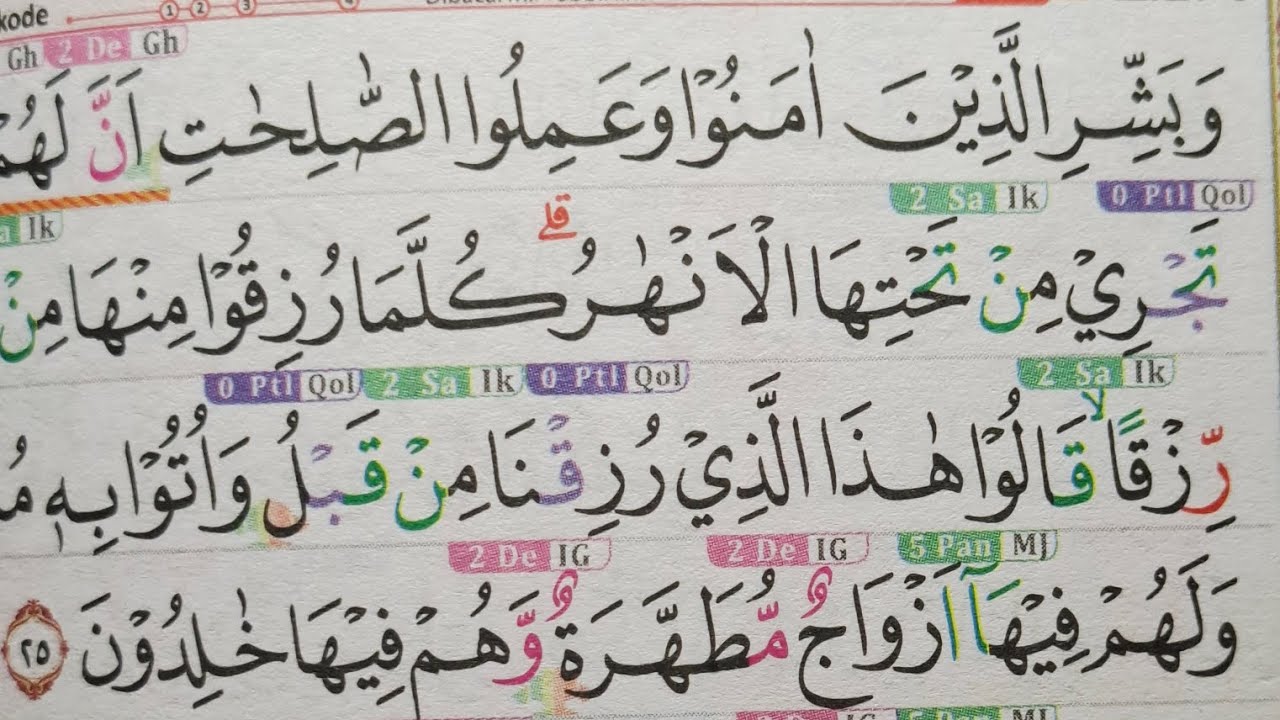 kode 1 2 3 4
Gh 2 De Gh
وَبَشِّرِ الَّذِيْنَ اٰمَنُوْا وَعَمِلُوا الصّٰلِحٰتِ اَنَّ لَهُمْ
Ik 2 Sa Ik 0 Ptl Qol
تَجْرِيْ مِنْ تَحْتِهَا الْاَنْهٰرُ ۗ كُلَّمَا رُزِقُوْا مِنْهَا مِنْ
0 Ptl Qol 2 Sa Ik 0 Ptl Qol 2 Sa Ik
رِّزْقًا ۙ قَالُوْا هٰذَا الَّذِيْ رُزِقْنَا مِنْ قَبْلُ وَاُتُوْا بِهٖ
2 De IG 2 De IG 5 Pan MJ
وَلَهُمْ فِيْهَآ اَزْوَاجٌ مُّطَهَّرَةٌ وَّهُمْ فِيْهَا خٰلِدُوْنَ ٢٥